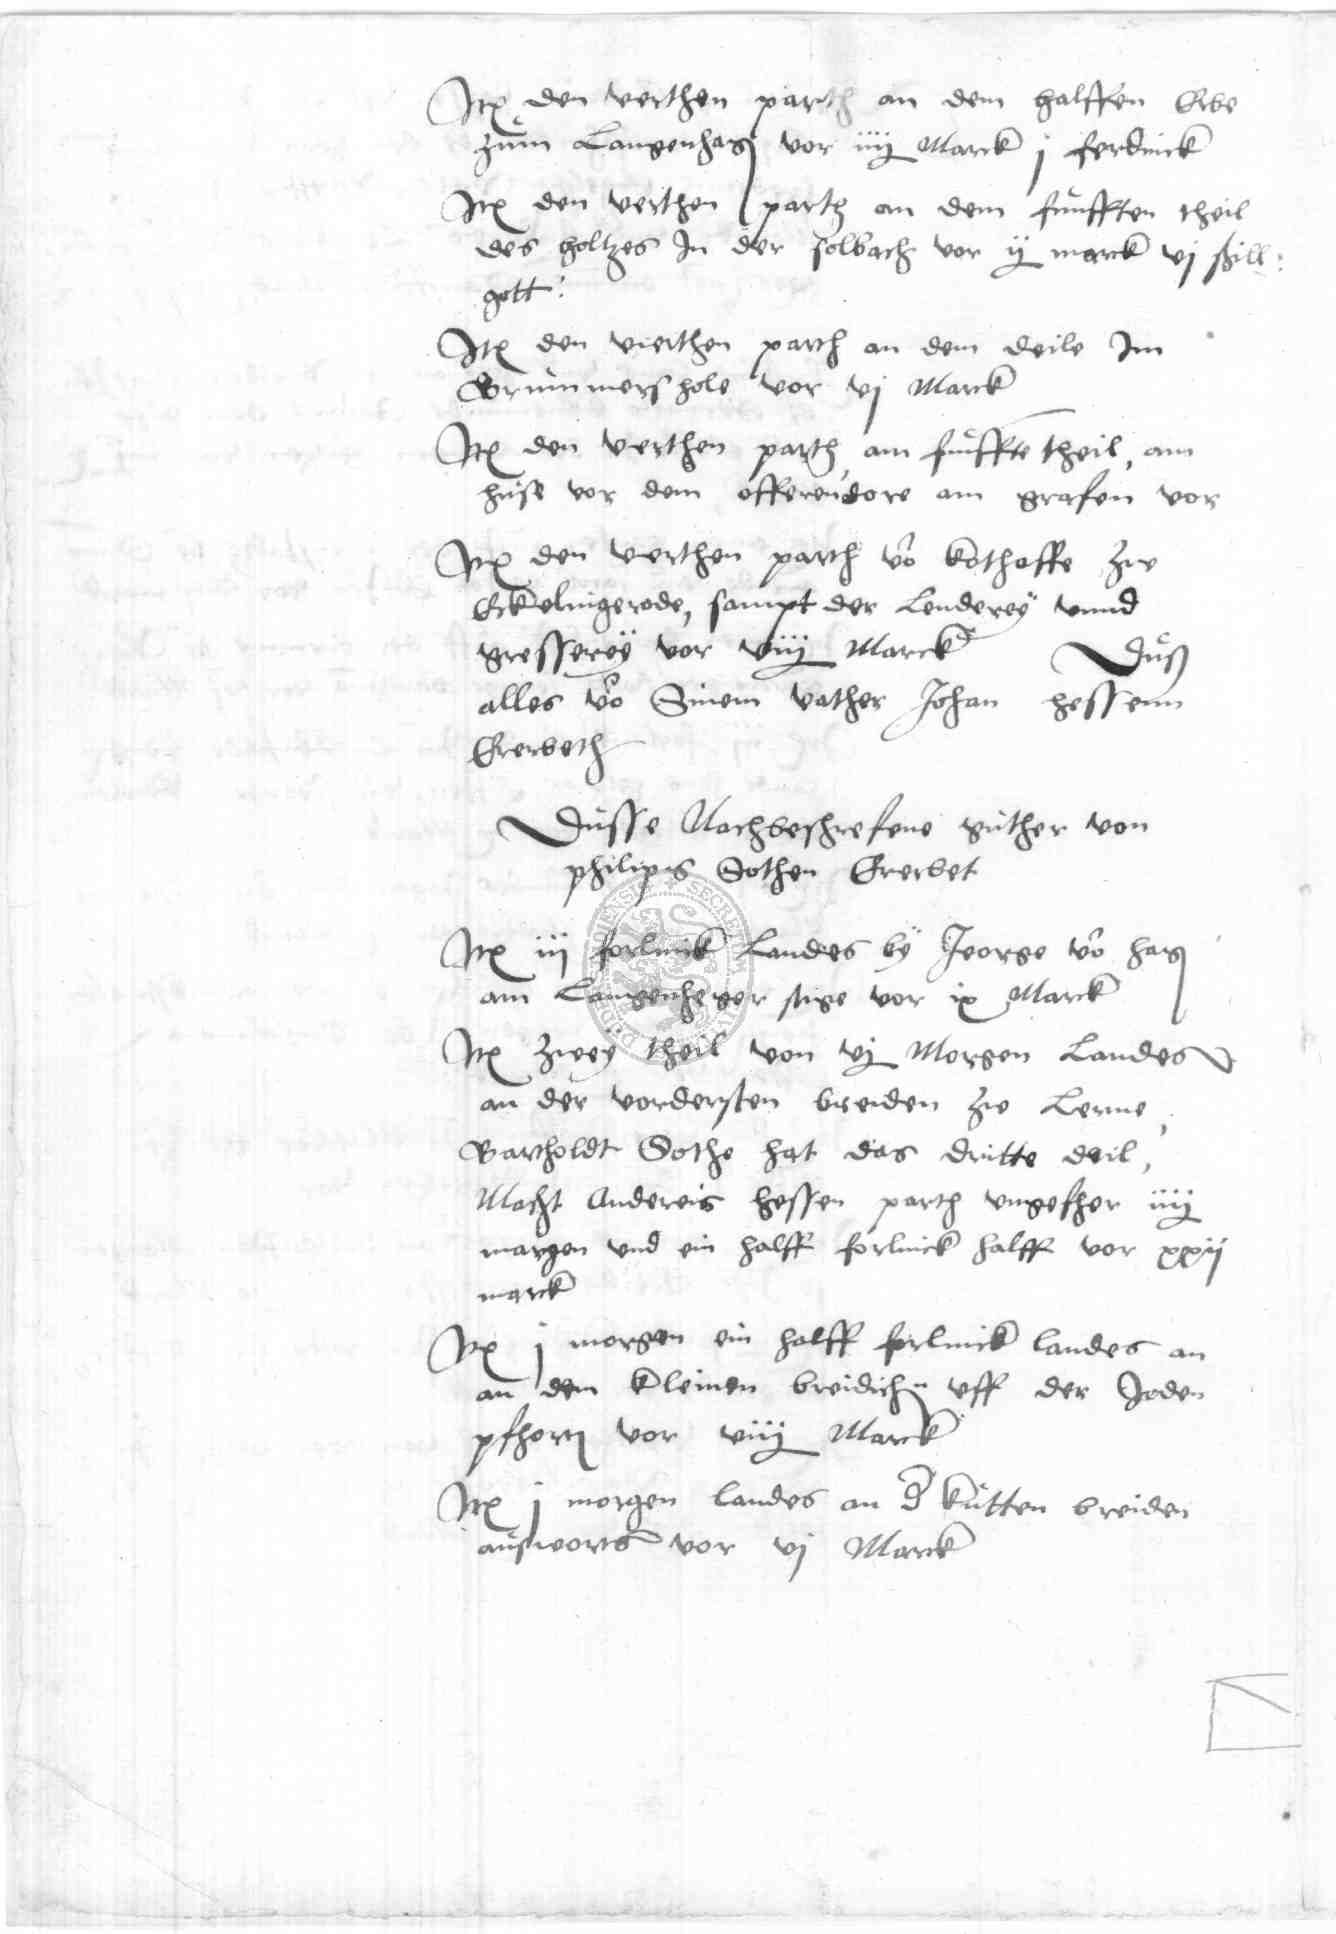 Itẽ den verthen parth an dem halffen Erbe
zům Langenhagẽ vor iiij Marck j ferdinck
Itẽ den verthen parth an dem fůnfften theil
des holtzes In der solbach vor ij marck vj ßill:
gott:
Itẽ den vierthen parth an dem deile Im
Brůmmershole vor vj Marck
Itẽ den verthen parth am fůnffte theil, am
hůse vor dem offerendore am grafen vor
Itẽ den verthen parth võ kothoffe zw
Eckelingerode, sampt der Lenderey vnnd
gresserey vor viij Marck Důß
alles võ Sinem vather Johan hessenn
Ererbeth
Důsse Nachbeschrefene gůther von
philips Sothen Ererbet
Itẽ iij forlinck Landes by Jeorge võ hagẽ
am Langenheger stige vor ix Marck
Itẽ zwey theil von vj Morgen Landes
an der vordersten breiden zw Lerne,
Bartholdt Sothe hat das dritte deil,
Macht Andereis hessen parth vngefher iiij
margen vnd ein halff forlinck halff vor xxij
marck
Itẽ j morgen ein halff forlinck landes an
an dem kleinen breidichen vff der Joden
pfhortẽ vor viij Marck
Itẽ j morgen landes an d kůtten breiden
aůsworts vor vj Marck